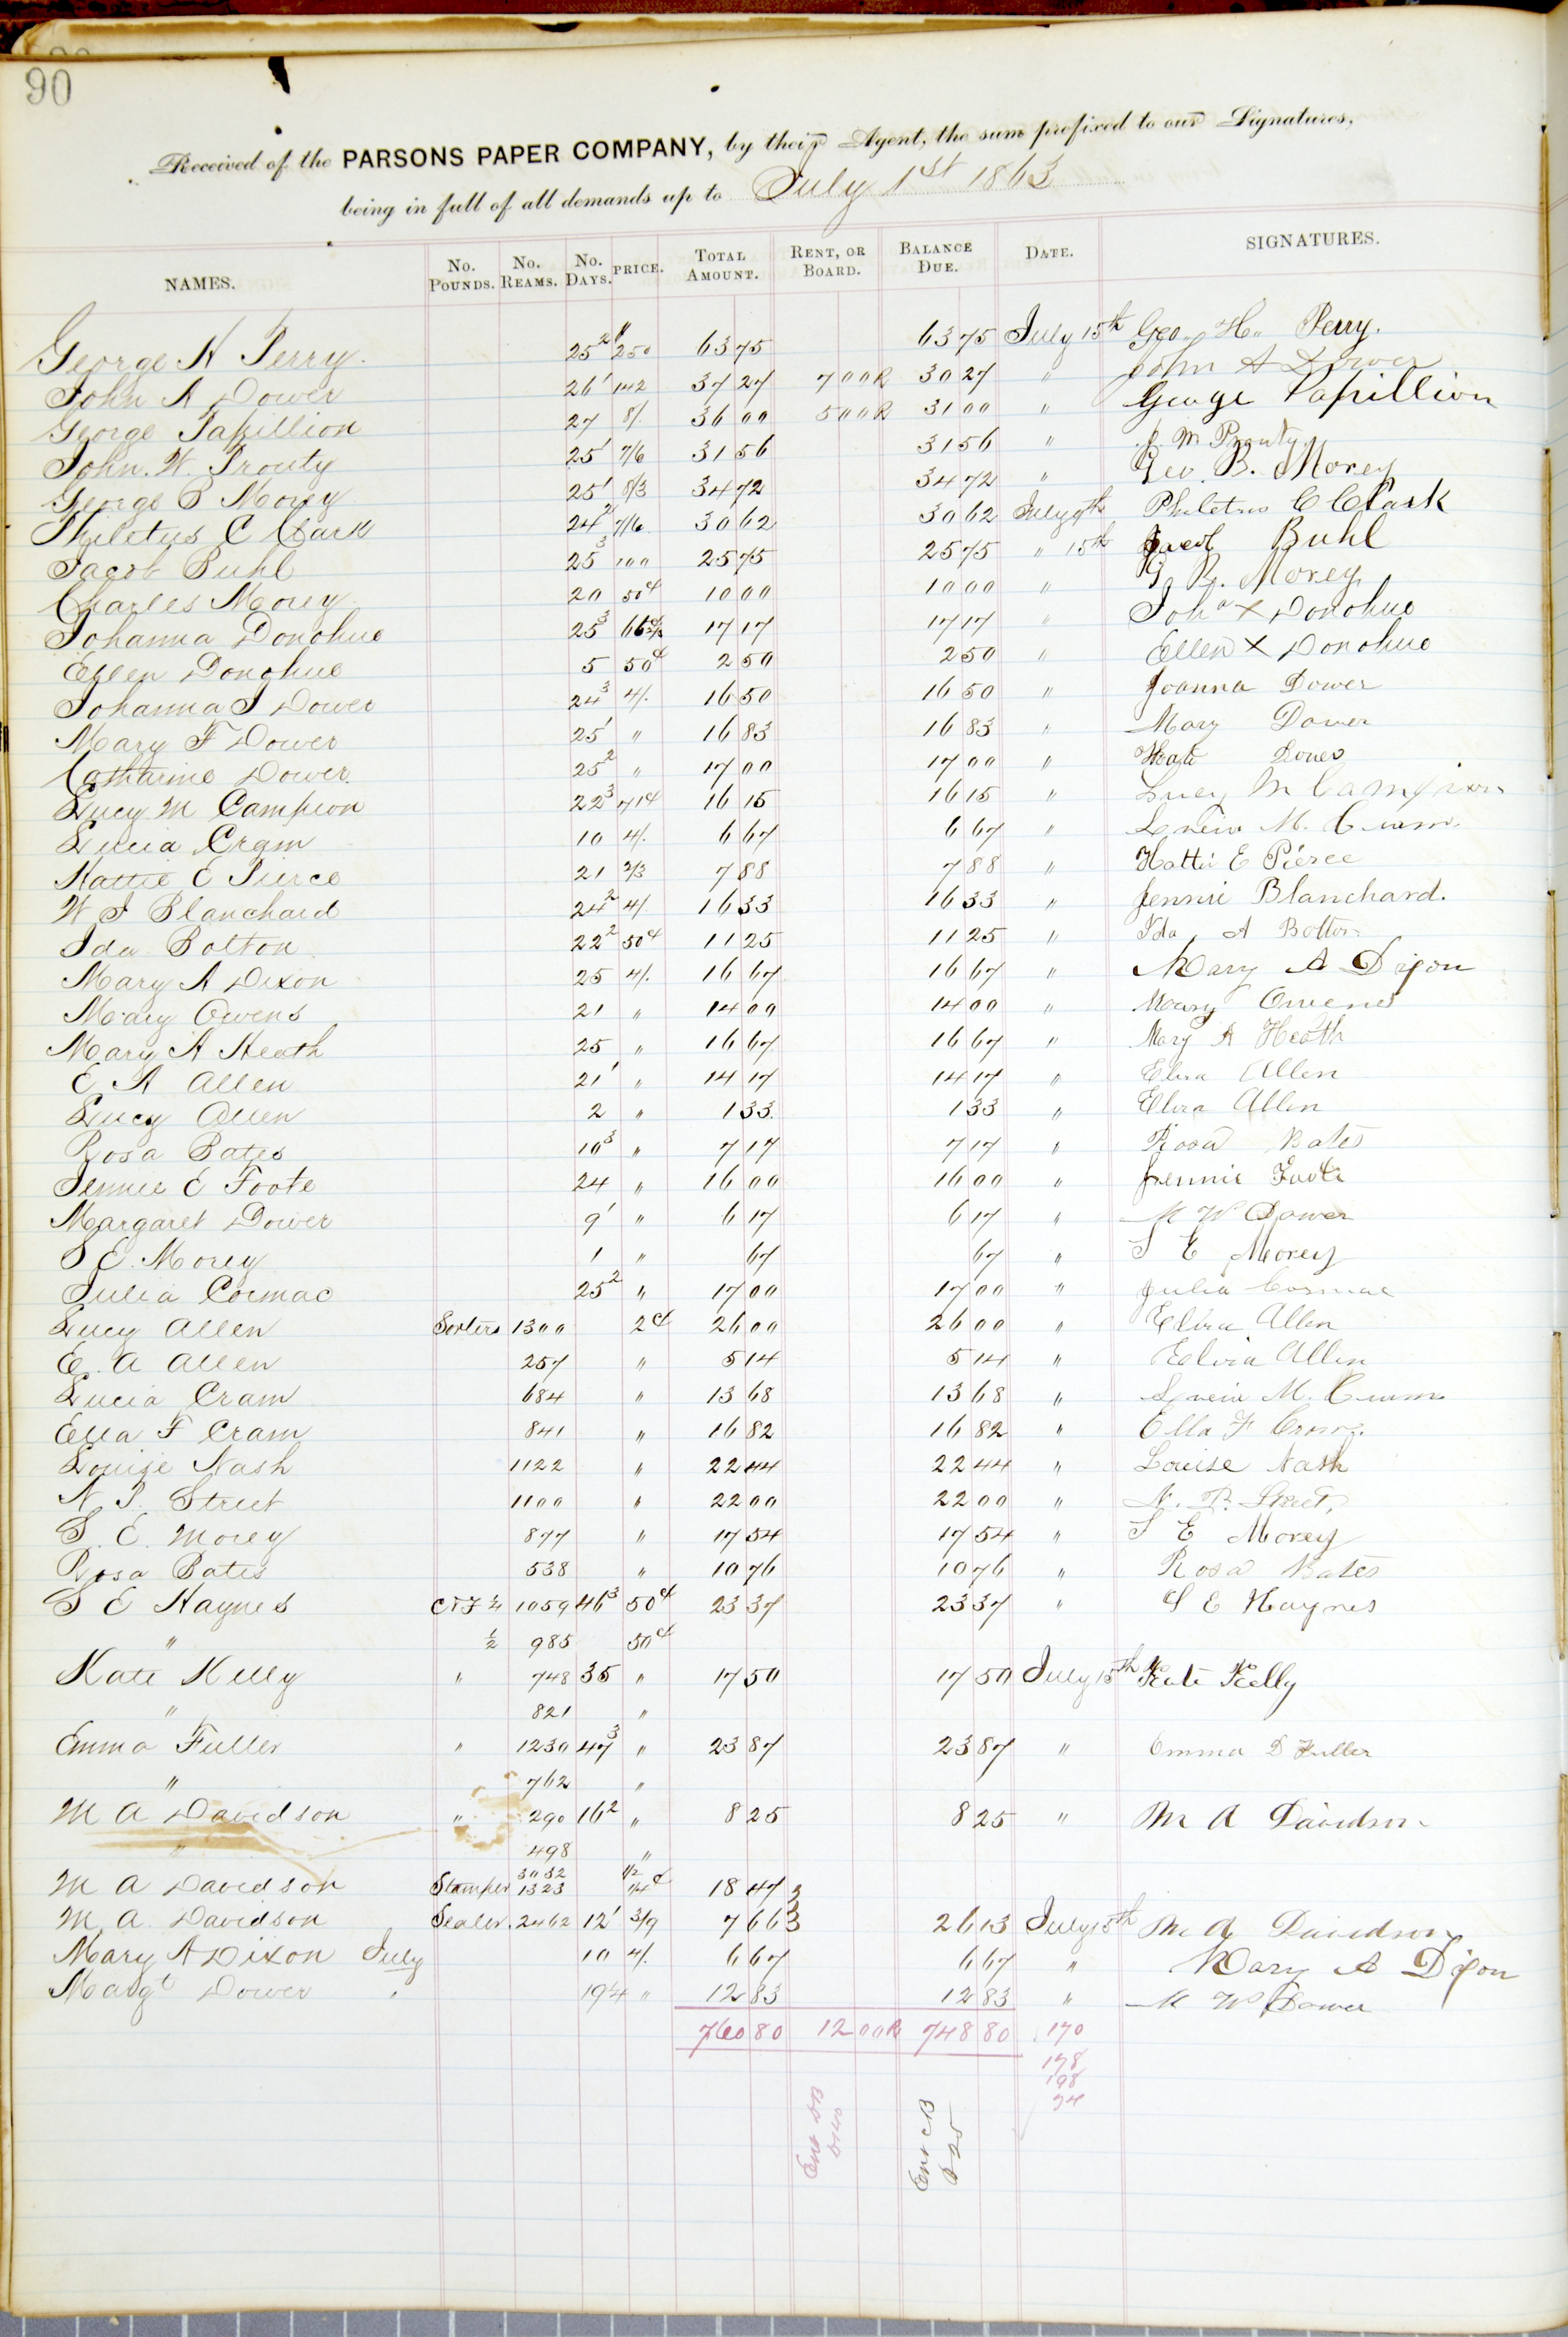 90
Received of the PARSONS PAPER COMPANY, by their Agent, the sum prefixed to our Signatures,
being in full of all demands up to July 1st 1863
NAMES. No. POUNDS. No. REAMS. No. DAYS. PRICE. TOTAL AMOUNT. RENT, OR BOARD. BALANCE DUE. DATE. SIGNATURES.
George H Perry. 25 2 250 63 75 63 75 July 15th Geo. H. Perry.
John A Dower 26 1 142 37 27 7 00 R 30 27 " John A Dower
George Papillion 27 8/. 36 00 5 00 R 31 00 " George Papillion
John. W. Prouty 25 1 7/6 31 56 31 56 " J. W. Prouty
George B Morey 25 1 8/3 34 72 34 72 " Geo. B. Morey
Philetus C Clark 24 2 7/6 30 62 30 62 July 9th Philetus C Clark
Jacob Buhl 25 3 100 25 75 25 75 " 15th Jacob Buhl
Charles Morey 20 50¢ 10 00 10 00 " G. B. Morey
Johanna Donohue 25 3 66⅔ 17 17 17 17 " Joha X Donohue
Ellen Donohue 5 50¢ 2 50 2 50 " Ellen X Donohue
Johanna J Dower 24 3 4/. 16 50 16 50 " Joanna Dower
Mary F Dower 25 1 " 16 83 16 83 " Mary Dower
Catharine Dower 25 2 " 17 00 17 00 " Kate Dower
Lucy M Campion 22 3 71¢ 16 15 16 15 " Lucy M Campion
Lucia Cram 10 4/. 6 67 6 67 " Lucia M. Cram.
Hattie E Pierce 21 2/3 7 88 7 88 " Hattie E Pierce
W J Blanchard 24 2 4/. 16 33 16 33 " Jennie Blanchard.
Ida Bolton 22 2 50¢ 11 25 11 25 " Ida A Bolton
Mary A Dixon 25 4/. 16 67 16 67 " Mary A Dixon
Mary Owens 21 " 14 00 14 00 " Mary Owens
Mary A Heath 25 " 16 67 16 67 " Mary A Heath
E A Allen 21 1 " 14 17 14 17 " Elvira Allen
Lucy Allen 2 " 1 33 1 33 " Elvira Allen
Rosa Bates 10 3 " 7 17 7 17 " Rosa Bates
Jennie E Foote 24 " 16 00 16 00 " Jennie Foote
Margaret Dower 9 1 " 6 17 6 17 " M W Dower
S E. Morey 1 " 67 67 " S E Morey
Julia Cormac 25 2 " 17 00 17 00 " Julia Cormac
Lucy Allen Sorters 1300 2¢ 26 00 26 00 " Elvira Allen
E. A Allen 257 " 5 14 5 14 " Elvira Allen
Lucia Cram 684 " 13 68 13 68 " Lucia M. Cram
Ella F Cram 841 " 16 82 16 82 " Ella F Cram.
Louise Nash 1122 " 22 44 22 44 " Louise Nash
N. P. Street 1100 " 22 00 22 00 " N. P. Street,
S. E. Morey 877 " 17 54 17 54 " S E Morey
Rosa Bates 538 " 10 76 10 76 " Rosa Bates
S E Haynes C & F ¼ 1059 46 3 50¢ 23 37 23 37 " S E Haynes
" ½ 985 50¢
Kate Kelly " 748 35 " 17 50 17 50 July 15th Kate Kelly
" 821 "
Emma Fuller " 1230 47 3 " 23 87 23 87 " Emma D Fuller
" 762 "
M A Davidson " 290 16 2 " 8 25 8 25 " M A Davidson
" 498 "
3032 1/2
M A Davidson Stamper 1323 1/4¢ 18 47
M A. Davidson Sealer. 2462 12 1 3/9 7 66 26 13 July 15th M A Davidson
Mary A Dixon July 10 4/. 6 67 6 67 " Mary A Dixon
Margt Dower " 19¼ " 12 83 12 83 " M W Dower
760 80 12 00 R 748 80 170
178
198
Ent CB